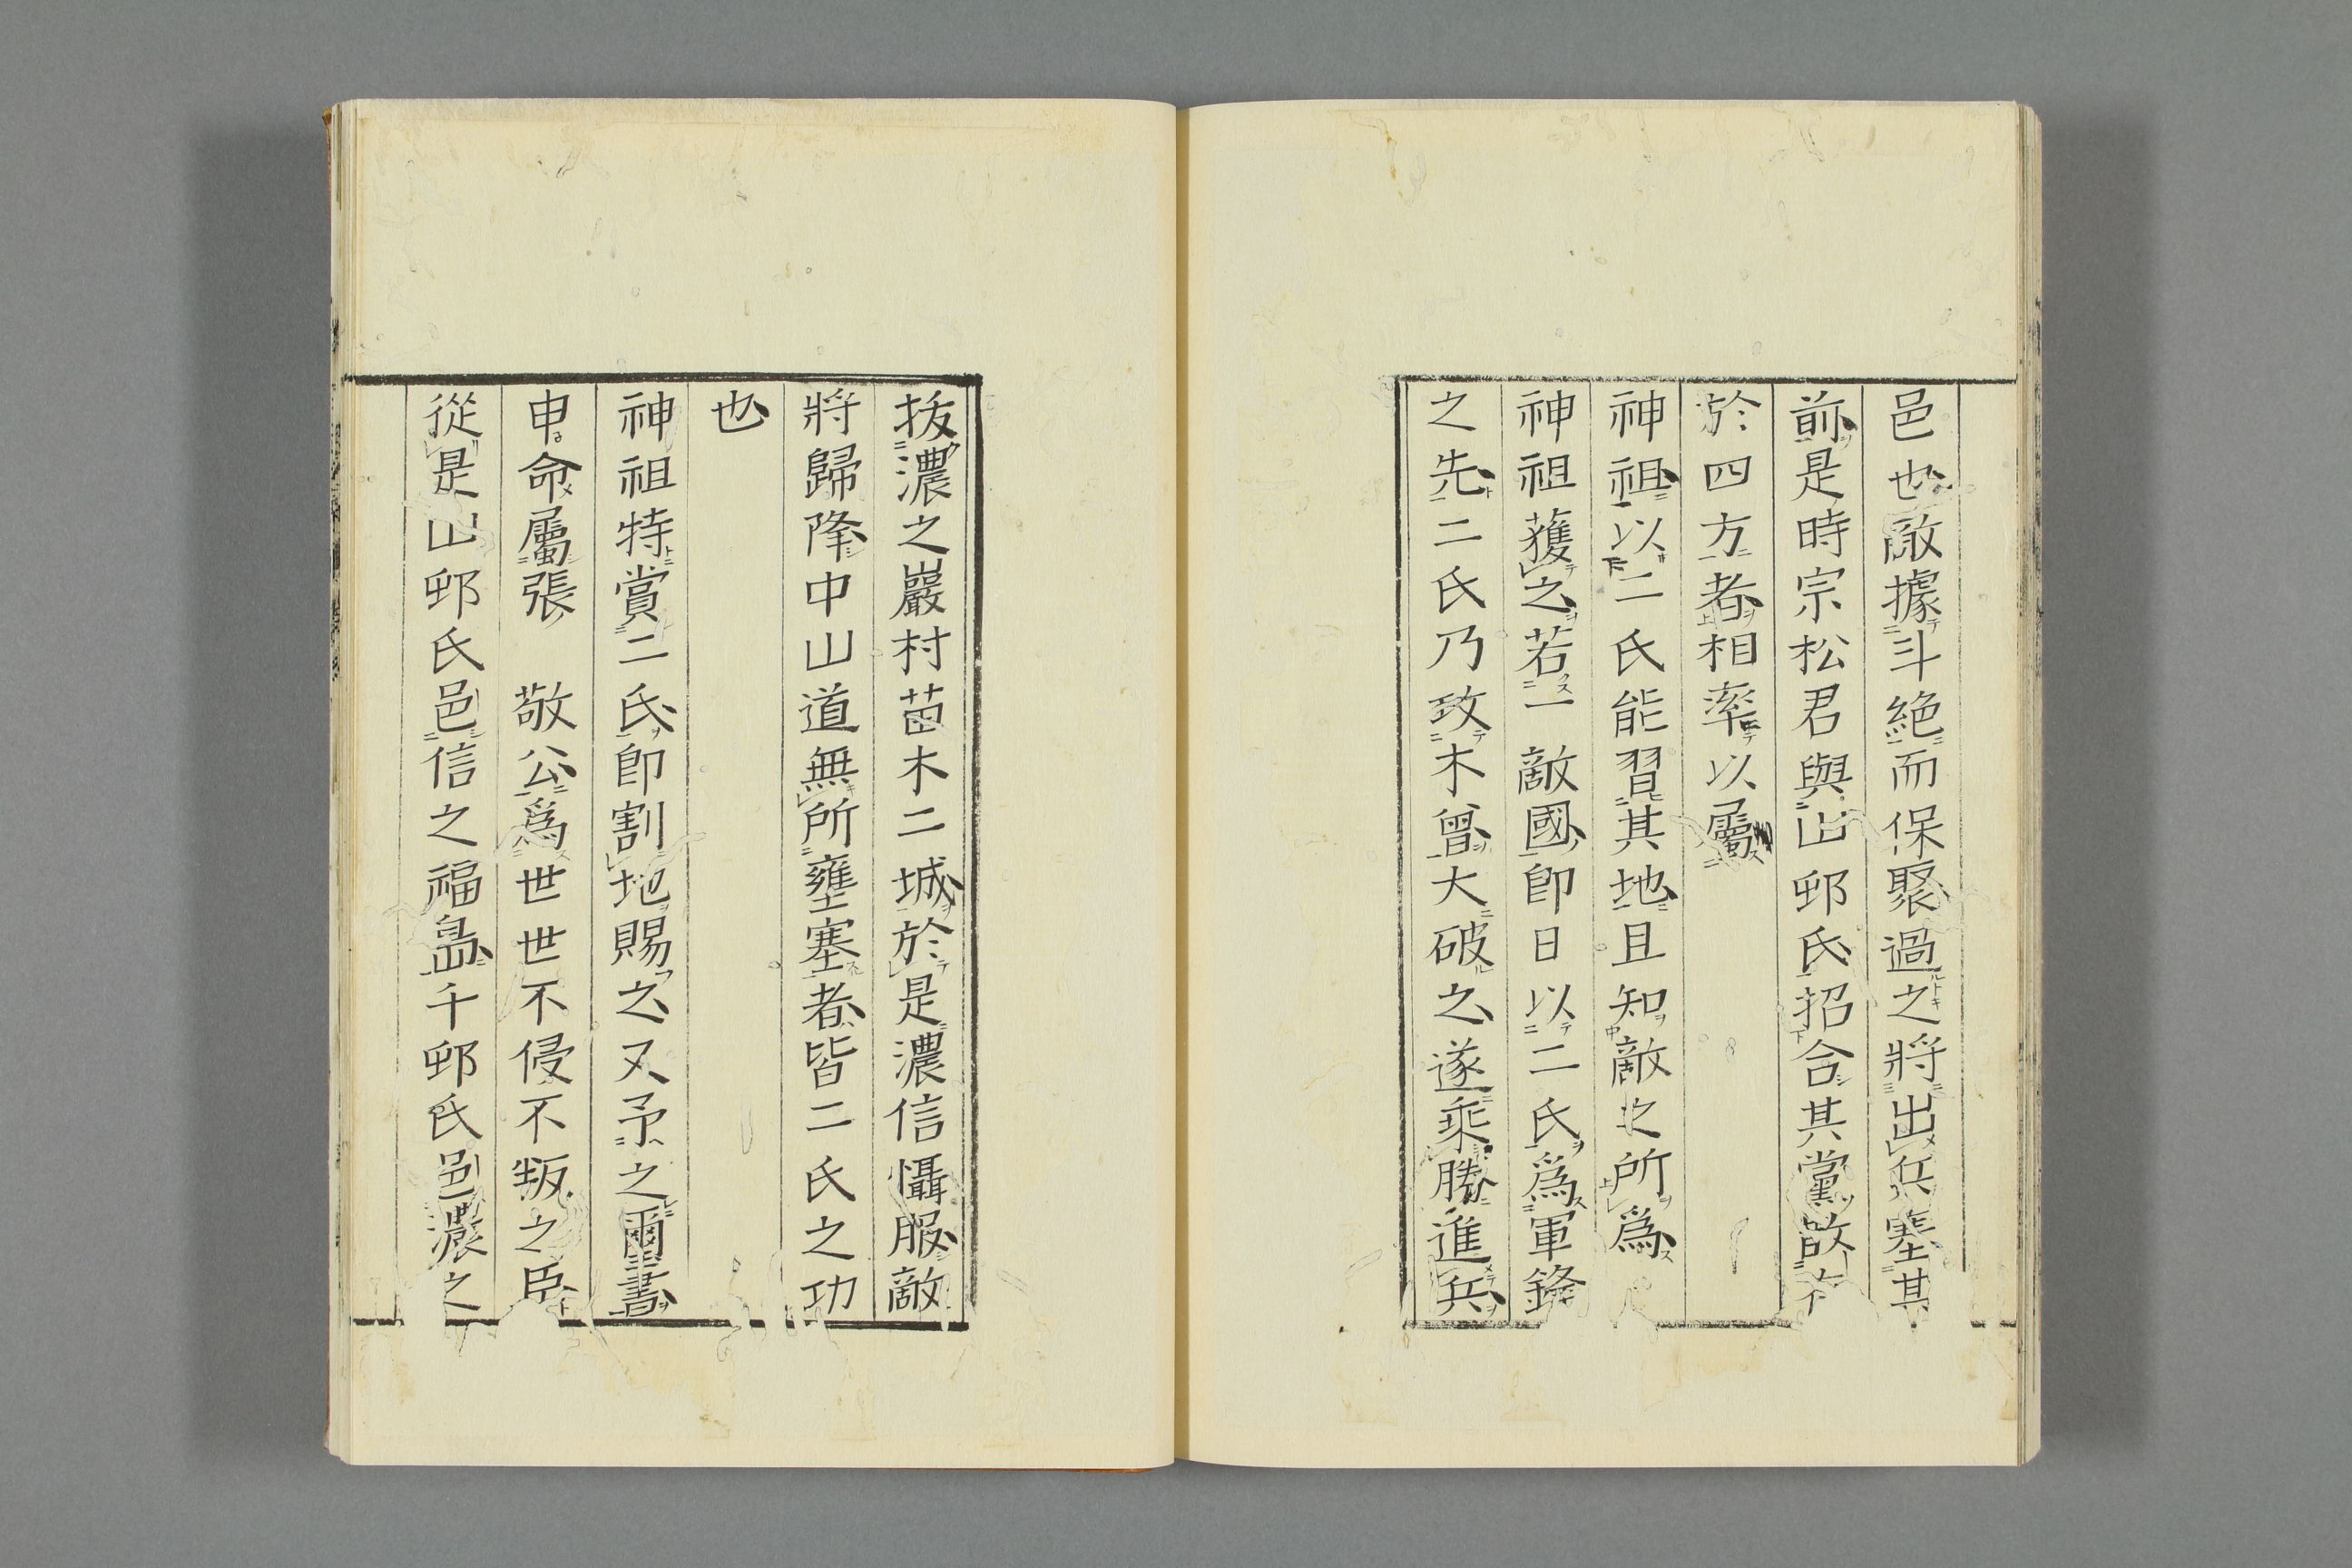 邑也敵據斗絕而保聚過之將出兵塞其
前是時宗松君與山邨氏招合其黨故
於四方者相率以屬
神祖以二氏能習其地且知敵之所爲
神祖獲之若一敵國卽日以二氏爲軍鋒
之先二氏乃攻木曾大破之遂乘勝進兵
拔濃之巖村苗木二城於是濃信懾服敵
將歸降中山道無所壅塞者皆二氏之功
也
神祖特賞二氏卽割地賜之又予之璽書
申命屬張 敬公爲世世不侵不叛之臣
從是山邨氏邑信之福島千邨氏邑濃之